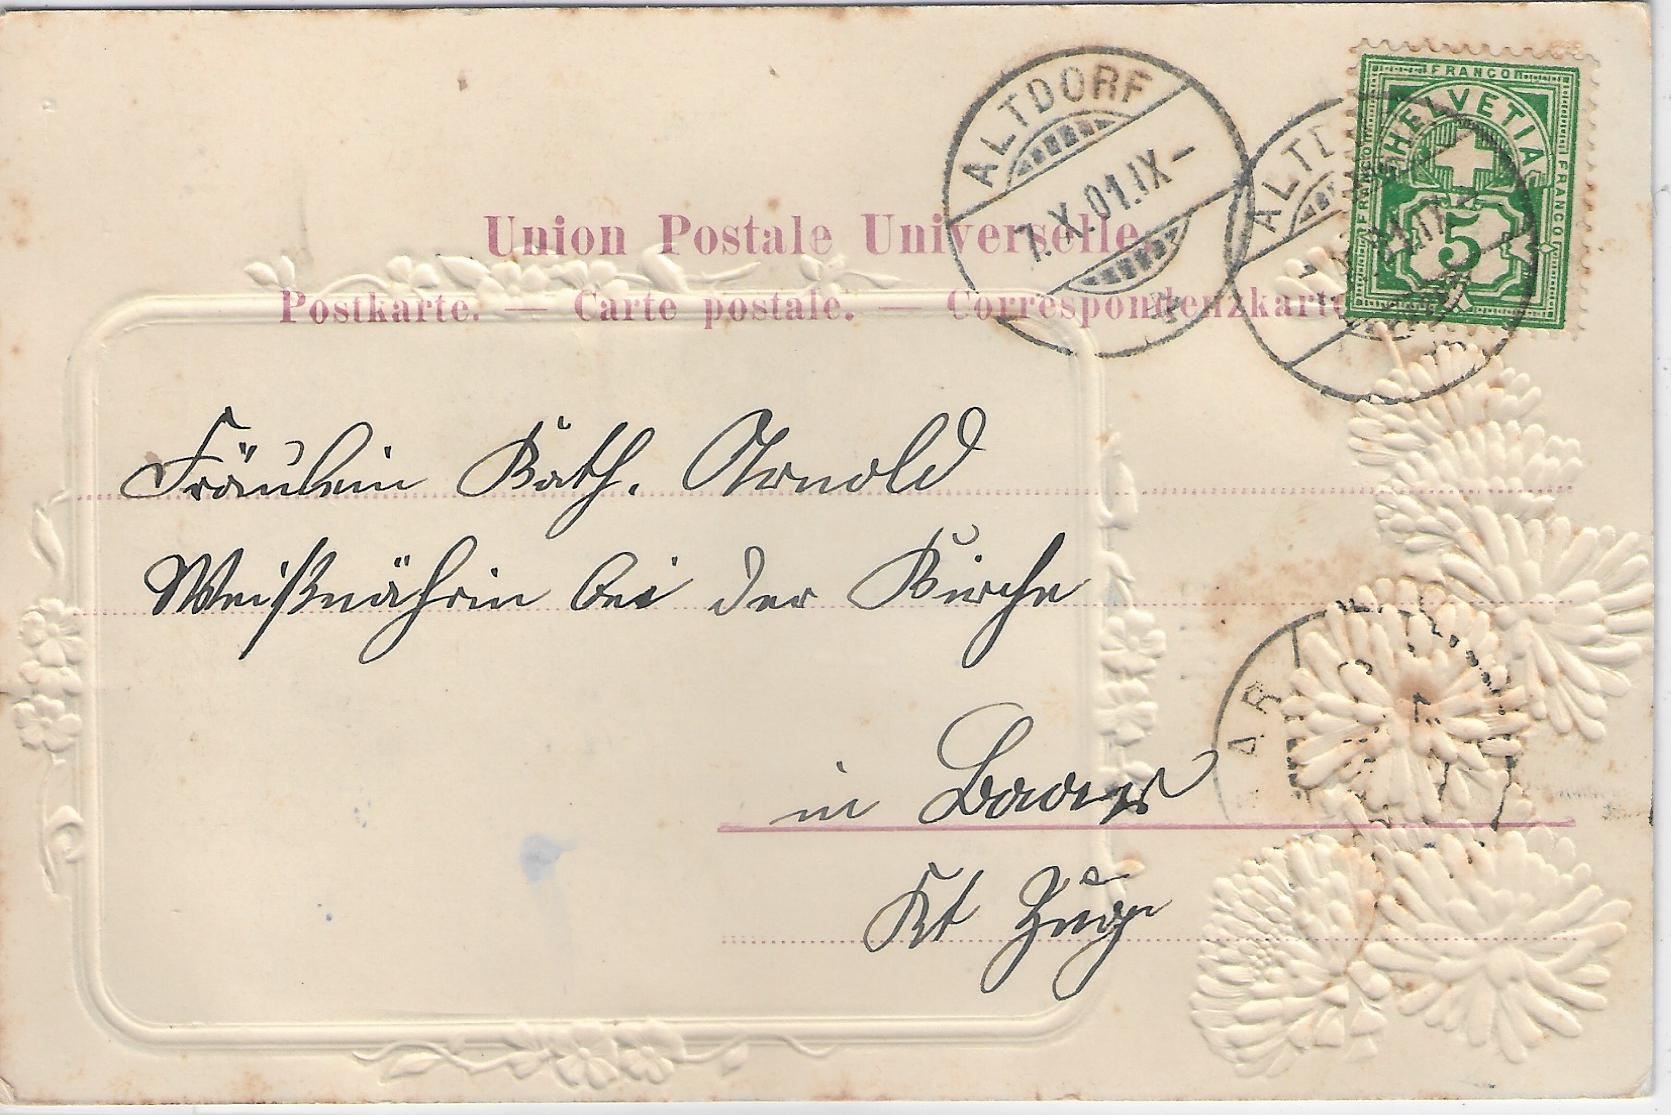 ALTDORF
7.X.01.IX–
ALTD
FRANCO
HELVETIA
FRANCO
FRANCO
5
Union Postale Universelle.
Postkarte. — Carte postale. — Correspondenzkarte
Fräulein Kath. Arnold
Weißnährin bei der Kirche
in Baar
Kt Zug